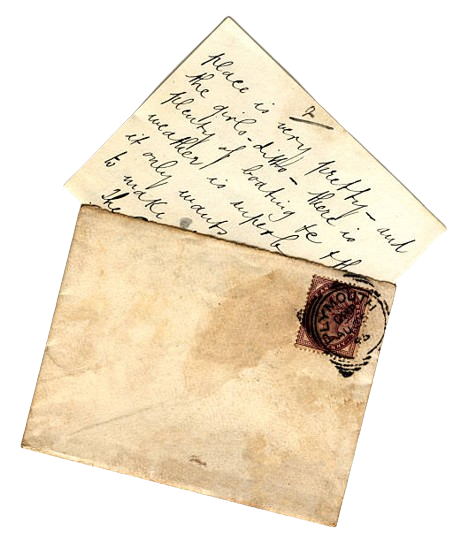 2
place is very pretty – and
the girls – ditto – there is
plenty of boating &c &
weather is superb
it only wants
to make
The
PLYMOUTH